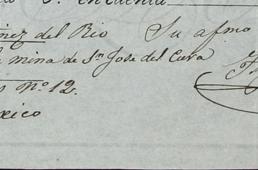 en cuenta
nez del Rio Su afmo
mina de Sn Jose del Cura
No. 12.
xico